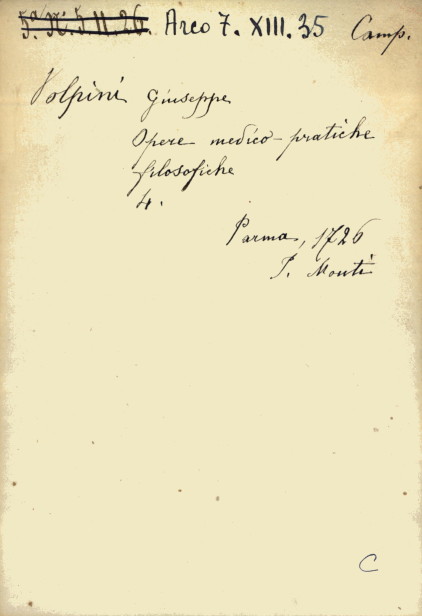 Arco 7. XIII. 35 Camp.
Volpini Giuseppe
Opere medico-pratiche
filosofiche
4.
Parma, 1726
P. Monti
C